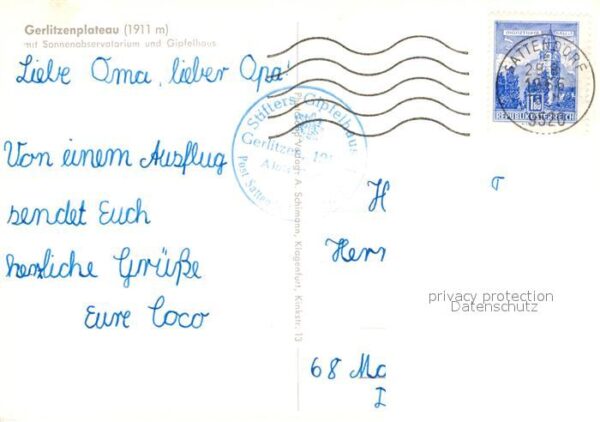 Gerlitzenplateau (1911 m)
mit Sonnenobservatorium und Gipfelhaus
Liebe Oma, lieber Opa!
Von einem Ausflug
sendet Euch
herzliche Grüße
Eure Coco
Stifters Gipfelhaus
Gerlitzen
Post
Verlag A. Schimann, Klagenfurt, Kinkstr. 13
REPUBLIK ÖSTERREICH
SATTENDORF
9520
H
Herr
68 Ma
privacy protection
Datenschutz